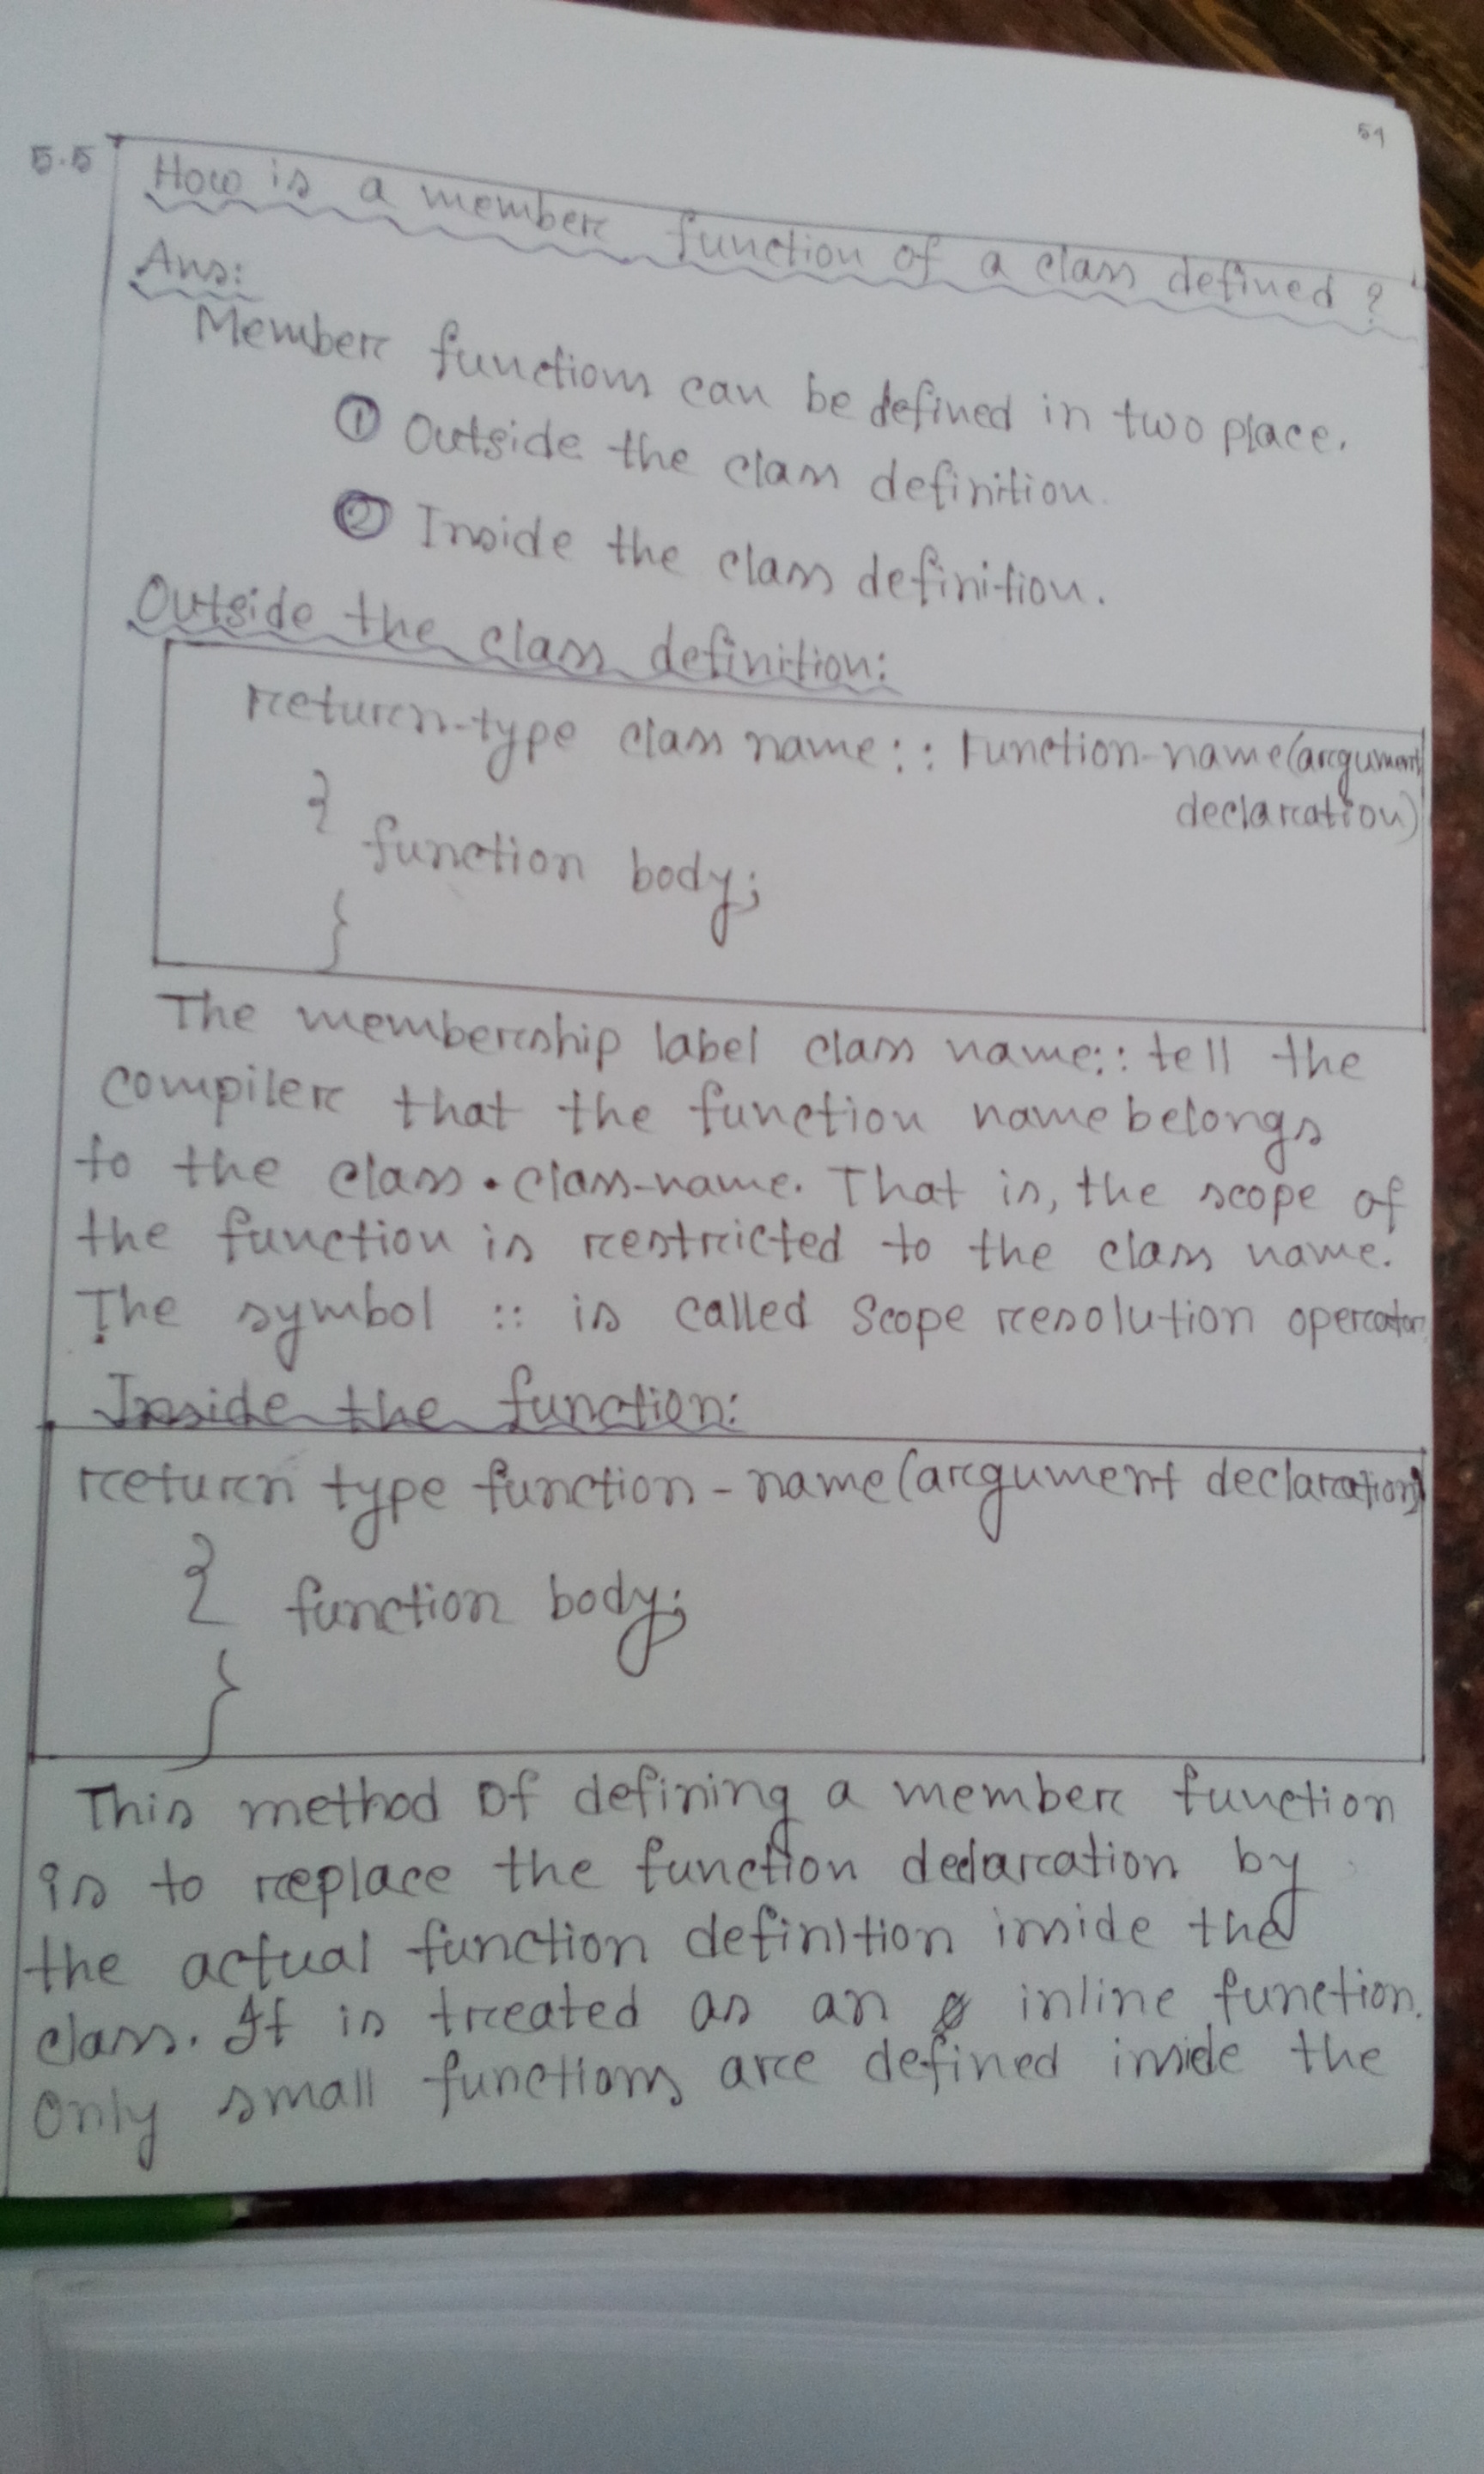 51
5.5 How is a member function of a class defined ?
Ans:
Member functions can be defined in two place.
① Outside the class definition.
② Inside the class definition.
Outside the class definition:
return-type class name :: Function-name(argument
declaration)
{
function body;
}
The membership label class name:: tell the
compiler that the function name belongs
to the class . class-name. That is, the scope of
the function is restricted to the class name.
The symbol :: is called Scope resolution operator.
Inside the function:
return type function - name (argument declaration)
{
function body;
}
This method of defining a member function
is to replace the function declaration by
the actual function definition inside the
class. It is treated as an inline function.
Only small functions are defined inside the